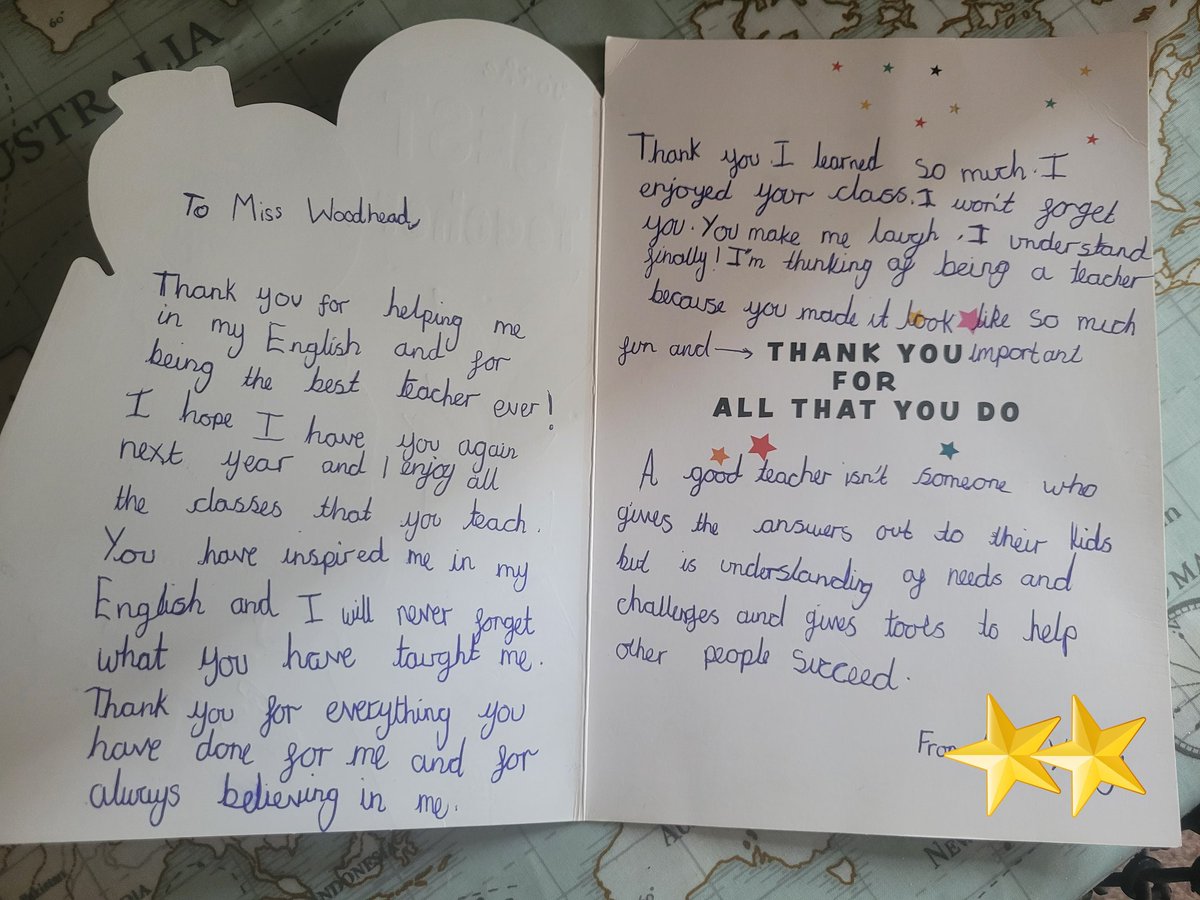 To Miss Woodhead,
Thank you for helping me
in my English and for
being the best teacher ever!
I hope I have you again
next year and I enjoy all
the classes that you teach.
You have inspired me in my
English and I will never forget
what you have taught me.
Thank you for everything you
have done for me and for
always believing in me.
Thank you I learned so much. I
enjoyed your class. I won't forget
you. You make me laugh. I understand
finally! I'm thinking of being a teacher
because you made it look like so much
fun and → THANK YOU important
FOR
ALL THAT YOU DO
A good teacher isn't someone who
gives the answers out to their kids
but is understanding of needs and
challenges and gives tools to help
other people succeed.
AUSTRALIA
INDONESIA